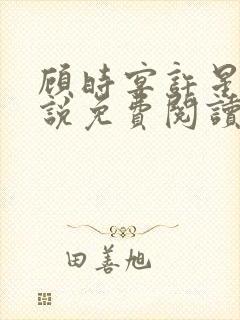 顾时宴許星
說免費閱讀
田善旭